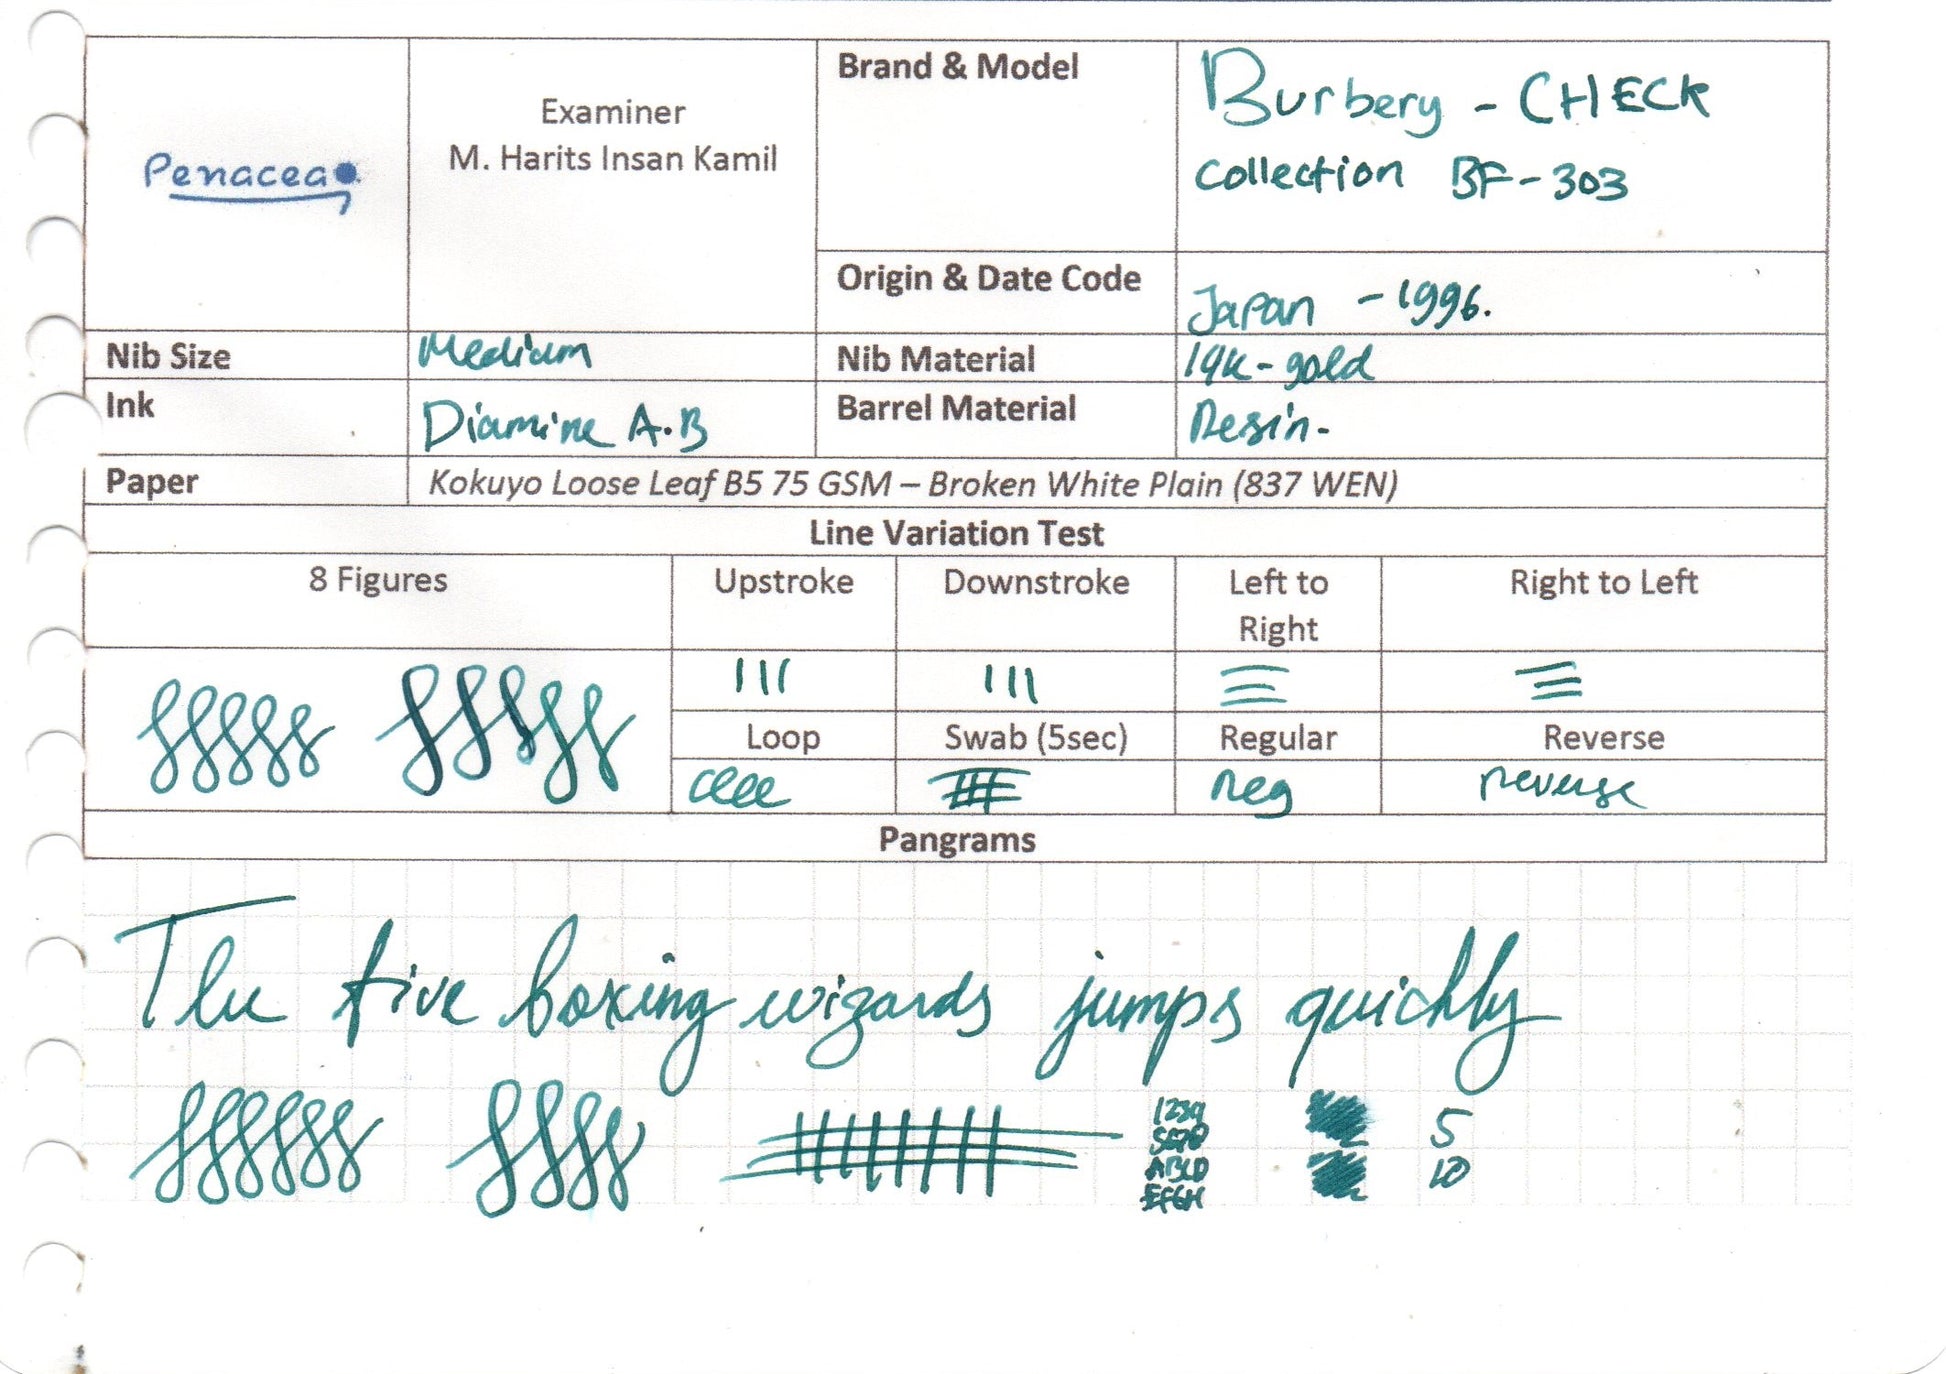 Penacea
Examiner
M. Harits Insan Kamil
Brand & Model
Burbery - CHECK
collection BF-303
Origin & Date Code
Japan - 1996.
Nib Size
Medium
Nib Material
14k-gold
Ink
Diamine A.B
Barrel Material
Resin-
Paper
Kokuyo Loose Leaf B5 75 GSM – Broken White Plain (837 WEN)
Line Variation Test
8 Figures
Upstroke
Downstroke
Left to
Right
Right to Left
Loop
Swab (5sec)
Regular
Reverse
elele
Reg
reverse
Pangrams
The five boxing wizards jumps quickly
1234
5678
ABCD
EFGH
5
10